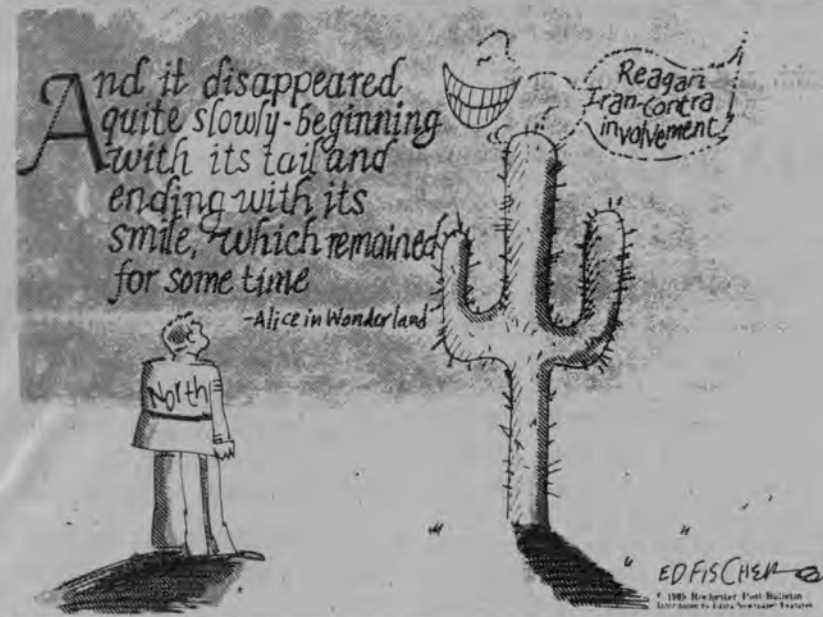 And it disappeared
quite slowly-beginning
with its tail and
ending with its
smile, which remained
for some time
-Alice in Wonderland
Reagan
Iran-Contra
involvement
North
ED FISCHER
© 1989 Rochester Post Bulletin